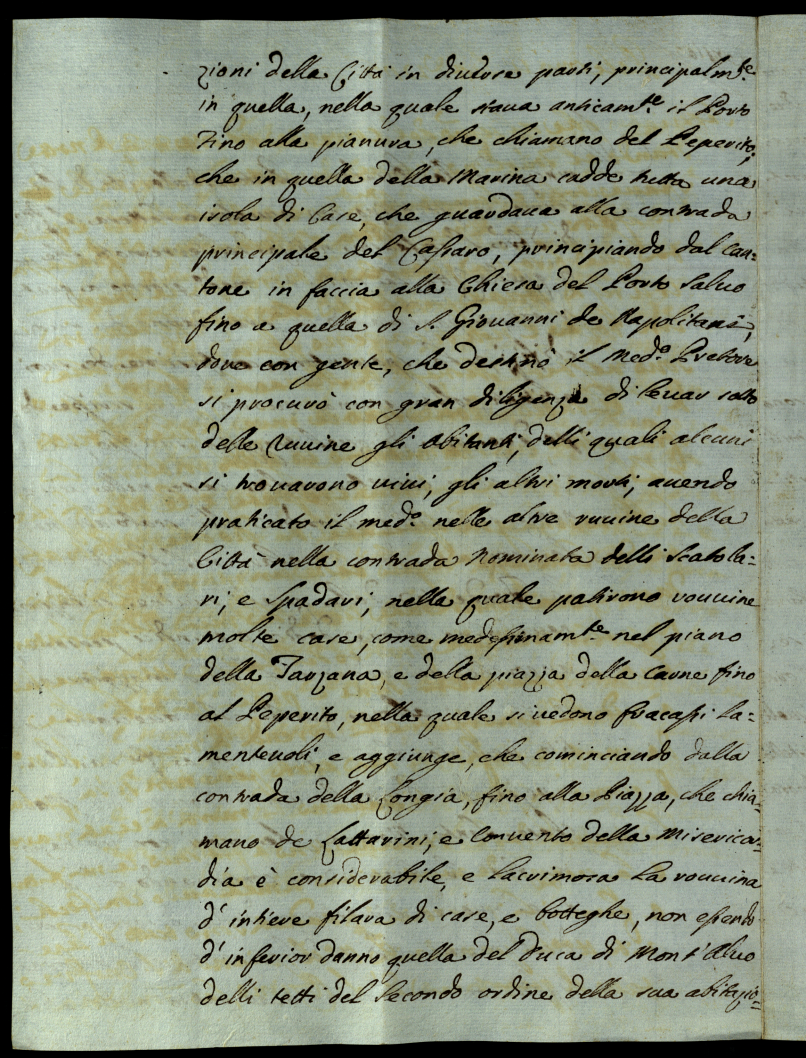 zioni della Città in diverse parti, principalm.te
in quella, nella quale stava anticam.te il Porto
sino alla pianura, che chiamano del Peperito;
che in quella della Marina cadde tutta una
isola di Case, che guardava alla contrada
principale del Cassaro, principiando dal can=
tone in faccia alla Chiesa del Porto Salvo
fino a quella di S. Giovanni de Napolitani,
dove con gente, che destinò il Med.o Pretore
si procurò con gran diligenza di levar sotto
delle Ruvine gli abitanti, delli quali alcuni
si trovarono vivi, gli altri morti, avendo
praticato il med.o nelle altre ruvine della
Città nella contrada nominata delli Scatola=
ri, e Spadari, nella quale patirono rouvine
molte case, come medesimam.te nel piano
della Tarzana, e della piazza della Carne fino
al Peperito, nella quale si vedono fracassi la=
mentevoli, e aggiunge, che cominciando dalla
contrada della Congia, fino alla Piazza, che chia=
mano de Lattarini, e Convento della Misericor=
dia è considerabile, e lacrimosa la rouvina
d' intiere filara di case, e botteghe, non essendo
d' inferior danno quella del Duca di Mont'Alvo
delli tetti del Secondo ordine della sua abitazio=